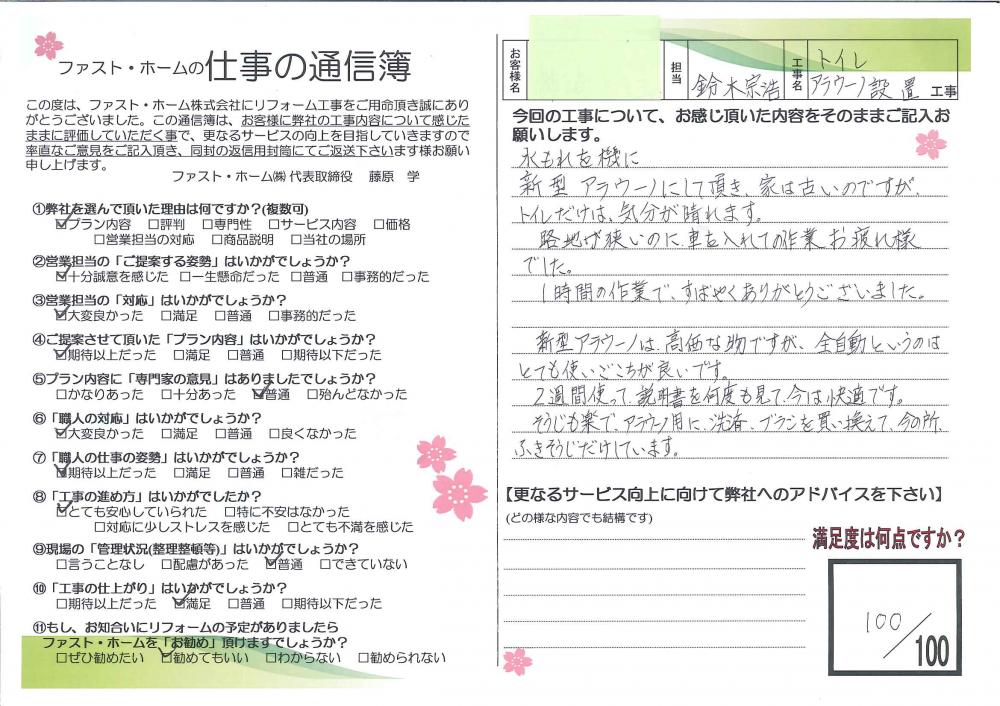 ファスト・ホームの仕事の通信簿
この度は、ファスト・ホーム株式会社にリフォーム工事をご用命頂き誠にあり
がとうございました。この通信簿は、お客様に弊社の工事内容について感じた
ままに評価していただく事で、更なるサービスの向上を目指していきますので
率直なご意見をご記入頂き、同封の返信用封筒にてご返送下さいます様お願い
申し上げます。
ファスト・ホーム㈱ 代表取締役 藤原 学
①弊社を選んで頂いた理由は何ですか？(複数可)
☑プラン内容 □評判 □専門性 □サービス内容 □価格
□営業担当の対応 □商品説明 □当社の場所
②営業担当の「ご提案する姿勢」はいかがでしょうか？
☑十分誠意を感じた □一生懸命だった □普通 □事務的だった
③営業担当の「対応」はいかがでしょうか？
☑大変良かった □満足 □普通 □事務的だった
④ご提案させて頂いた「プラン内容」はいかがでしょうか？
☑期待以上だった □満足 □普通 □期待以下だった
⑤プラン内容に「専門家の意見」はありましたでしょうか？
□かなりあった □十分あった ☑普通 □殆んどなかった
⑥「職人の対応」はいかがでしょうか？
☑大変良かった □満足 □普通 □良くなかった
⑦「職人の仕事の姿勢」はいかがでしょうか？
☑期待以上だった □満足 □普通 □雑だった
⑧「工事の進め方」はいかがでしたか？
☑とても安心していられた □特に不安はなかった
□対応に少しストレスを感じた □とても不満を感じた
⑨現場の「管理状況(整理整頓等)」はいかがでしょうか？
□言うことなし □配慮があった ☑普通 □できていない
⑩「工事の仕上がり」はいかがでしょうか？
□期待以上だった ☑満足 □普通 □期待以下だった
⑪もし、お知合いにリフォームの予定がありましたら
ファスト・ホームを「お勧め」頂けますでしょうか？
□ぜひ勧めたい ☑勧めてもいい □わからない □勧められない
お客様名
担当 鈴木宗浩
工事名 トイレ
アラウーノ設置 工事
今回の工事について、お感じ頂いた内容をそのままご記入お
願いします。
水もれを機に
新型アラウーノにして頂き、家は古いのですが、
トイレだけは、気分が晴れます。
路地が狭いのに、車を入れての作業お疲れ様
でした。
1時間の作業で、すばやくありがとうございました。
新型アラウーノは、高価な物ですが、全自動というのは
とても使いごこちが良いです。
2週間使って、説明書を何度も見て、今は快適です。
そうじも楽で、アラウーノ用に、洗浄、ブラシを買い換えて、今の所、
ふきそうじだけしています。
【更なるサービス向上に向けて弊社へのアドバイスを下さい】
(どの様な内容でも結構です)
満足度は何点ですか？
100/100